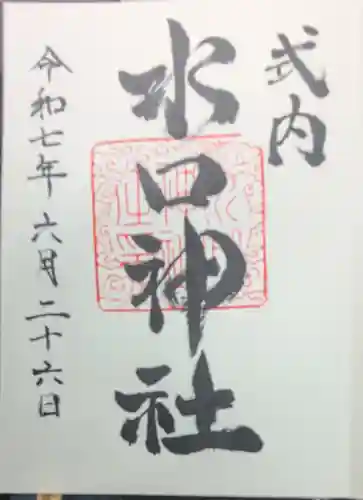 式内
水口神社
令和七年六月二十六日